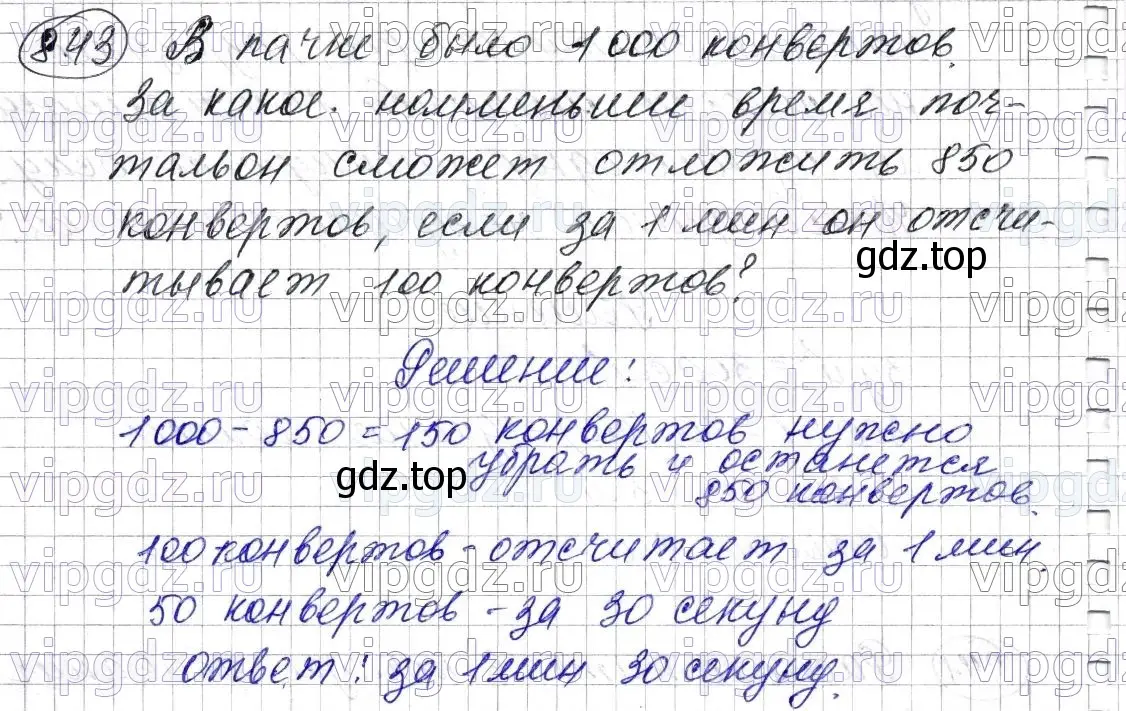 843 В пачке было 1000 конвертов.
За какое наименьшее время поч-
тальон сможет отложить 850
конвертов, если за 1 мин он отсчи-
тывает 100 конвертов?
gdz.top
Решение:
1000 - 850 = 150 конвертов нужно
убрать и останется
850 конвертов.
gdz.top
100 конвертов - отсчитает за 1 мин.
50 конвертов - за 30 секунд
ответ: за 1 мин 30 секунд.
vipgdz.ru